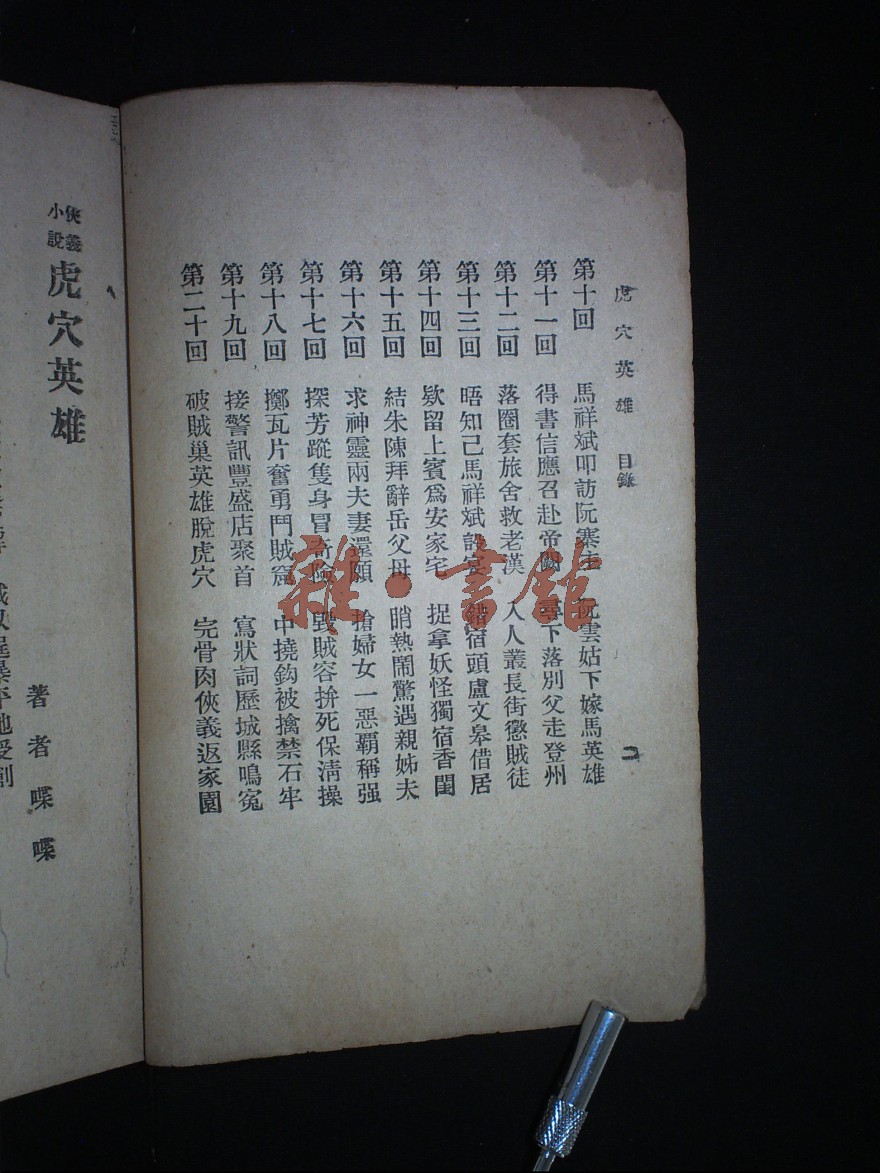 虎穴英雄 目錄 二
第十回 馬祥斌叩訪阮寨主 阮雲姑下嫁馬英雄
第十一回 得書信應召赴帝闕 尋下落別父走登州
第十二回 落圈套旅舍救老漢 入人叢長街懲賊徒
第十三回 晤知己馬祥斌設宴 錯宿頭盧文皋借居
第十四回 欵留上賓爲安家宅 捉拿妖怪獨宿香閨
第十五回 結朱陳拜辭岳父母 睄熱鬧驚遇親姊夫
第十六回 求神靈兩夫妻還願 搶婦女一惡霸稱强
第十七回 探芳蹤隻身冒奇險 毀賊容拚死保淸操
第十八回 擲瓦片奮勇鬥賊窟 中撓鈎被擒禁石牢
第十九回 接警訊豐盛店聚首 寫狀詞歷城縣鳴冤
第二十回 破賊巢英雄脫虎穴 完骨肉俠義返家園
俠義小說 虎穴英雄
著者 喋喋
雜·書館